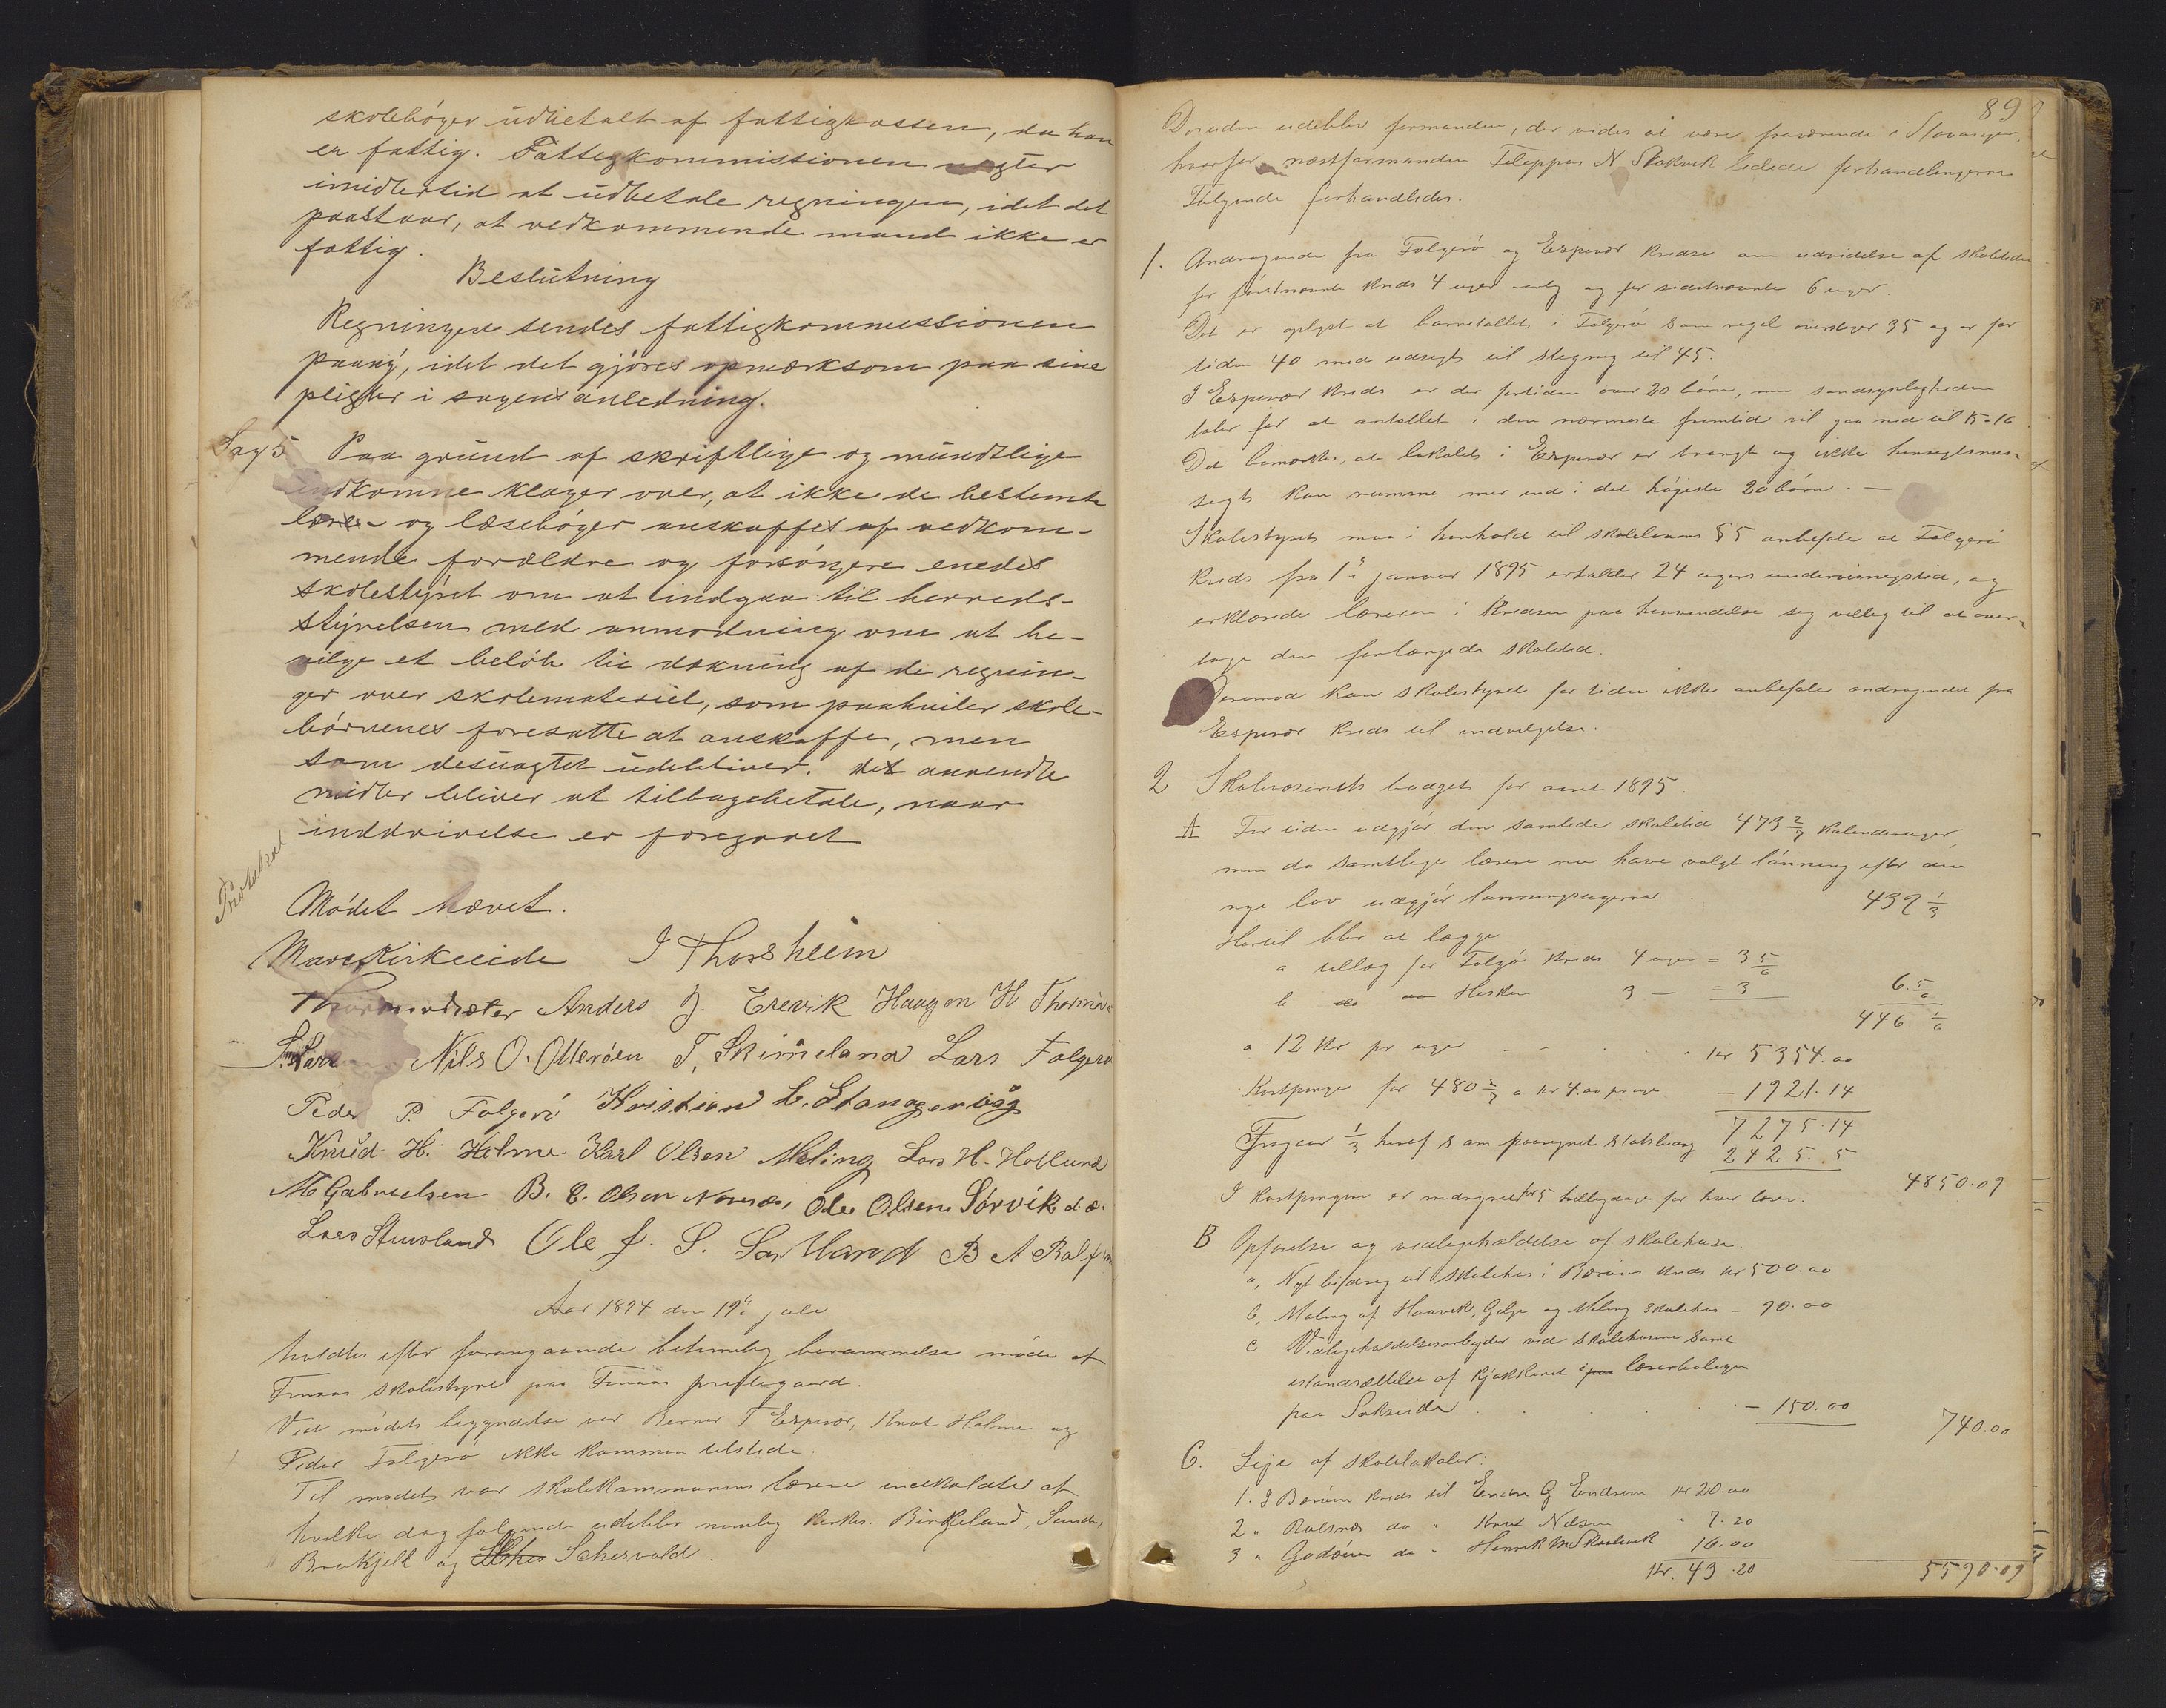 skolebøger udbetalt af fattigkassen, da han
er fattig. Fattigkommissionen negter
imidlertid at udbetale regningen, idet det
paastaar, at vedkommende mand ikke er
fattig.
Beslutning
Regningen sendes fattigkommissionen
paany, idet det gjøres opmærksom paa sine
pligter i sagens anledning.
Sag 5 Paa grund af skriftlige og mundtlige
indkomne klager over, at ikke de bestemte
lære- og læsebøger anskaffes af vedkom-
mende forældre og forsørgere enedes
skolestyret om at indgaa til herreds-
styrelsen med anmodning om at be-
vilge et beløb til dækning af de regnin-
ger over skolemateriel, som paahviler skole-
børnenes foresatte at anskaffe, men
som desuagtet udebliver. det anvendte
midler bliver at tilbagebetale, naar
inddrivelse er foregaaet
Mødet hævet.
J Thorsheim
Anders J. Erevik Haagen H
Nils O. Ollerøen T. Skimeland Lars Folgerø
Peder P. Folgerø Kristian L. Stangervåg
Knud H. Holme Karl Olsen Meling Lars H. Hovland
M Gabrielsen B. E. Olsen Ole Olsen Sørvik
Lars Stuvland Ole J. S. B A
Aar 1894 den 19de juli
holdtes efter forangaaende betimelig berammelse møde af
Finaas skolestyre paa Finaas prestegaard.
Ved mødets begyndelse var Berner T Espevær, Knut Holme og
Peder Folgerø ikke kommen tilstede.
Til mødet var skolekommunens lærere indkaldte af
hvilke dog følgende udeblev nemlig kirkes. Birkeland,
og
89
Desuden udeblev formanden, der vides at være fraværende i Stavanger,
hvorfor næstformanden Filippus N Stokvik ledede forhandlingerne
Følgende forhandledes.
1. Andragende fra Folgerø og Espevær kredse om udvidelse af skoletiden
for førstnævnte kreds 4 uger og for sidstnævnte 6 uger.
Det er oplyst at barnetallet i Folgerø som regel overstiger 35 og er for
tiden 40 med udsigt til stigning til 45.
I Espevær kreds er der fortiden over 20 børn, men sandsynligheden
taler for at antallet i den nærmeste fremtid vil gaa ned til 15-16
Det bemærkes, at lokalet i Espevær er trangt og ikke hensigtsmes-
sigt kan rumme mer end i det højeste 20 børn. —
Skolestyret maa i henhold til skolelovens § 5 anbefale at Folgerø
kreds fra 1ste januar 1895 erholder 24 ugers undervisningstid, og
erklærede læreren i kredsen paa henvendelse sig villig til at over-
tage den forlængede skoletid.
Derimod kan skolestyret for tiden ikke anbefale andragendet fra
Espevær kreds til indvilgelse.
2 Skolevæsenets budget for aaret 1895.
A For tiden udgjør den samlede skoletid 473 2/7 kalenderuger,
men da samtlige lærere nu have valgt lønning efter den
nye lov udgjør lønningsugerne 439 1/3
Hertil blir at lægge
a tillæg for Folgerø kreds 4 uger = 3 5/6
b do 3 — = 3 6. 5/6
446 1/6
a 12 kr pr uge . . . kr 5354.00
Kostpenge for 480 2/7 a kr 4.00 pr uge — 1921.14
7275.14
Fragaar 1/3 heraf som paaregnet statsbidrag 2425. 5
4850.09
I kostpengene er medregnet for 5 helligdage for hver lærer.
B Opførelse og vedligeholdelse af skolehuse.
a, Nyt bidrag til skolehus i kreds kr 500.00
b, Maling af Haavik, Gilje og Meling skolehus — 90.00
c Vedligeholdelsesarbejder ved skolehusene samt
istandsættelse af kjøkkenet i lærerboligen
paa . . . — 150.00
740.00
C. Leje af skolelokaler:
1. I kreds til kr 20.00
2 " do " Knut Nilsen " 7.20
3 " do " Henrik 16.00
Kr. 43.20
5590.09